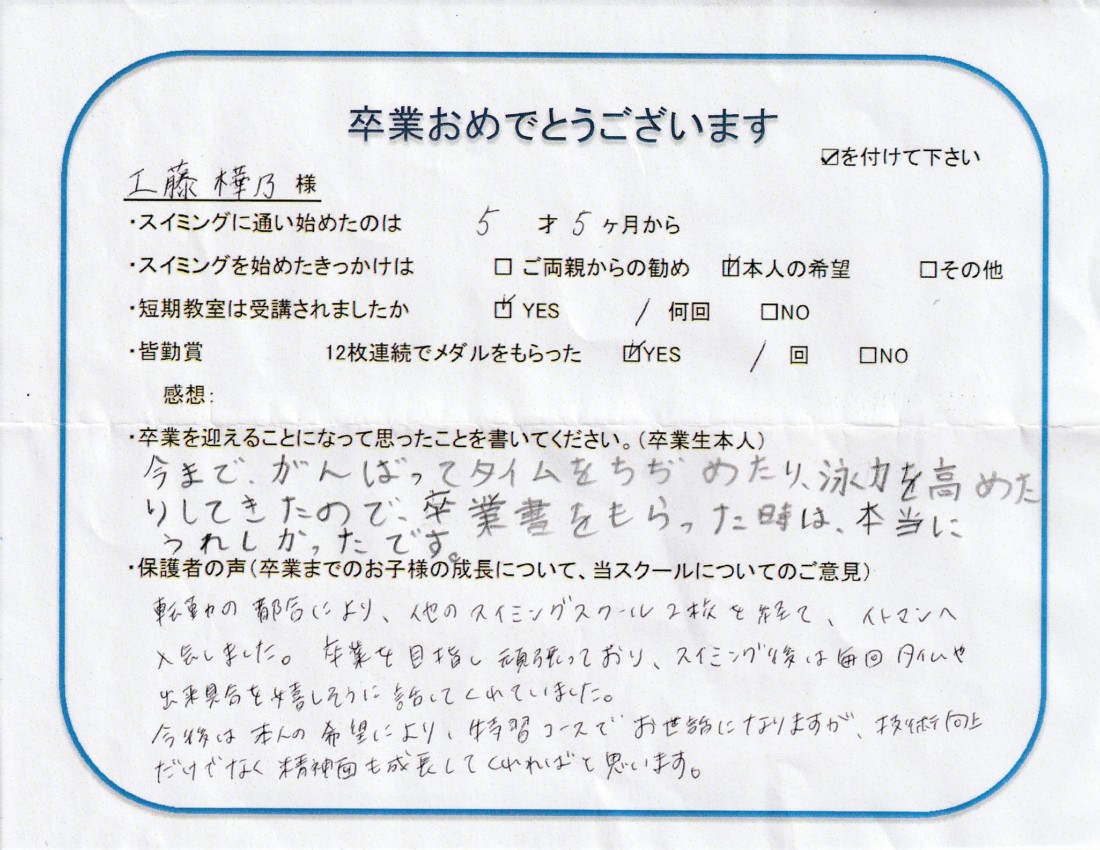 卒業おめでとうございます
☑を付けて下さい
工藤樺乃 様
・スイミングに通い始めたのは 5 才 5 ヶ月から
・スイミングを始めたきっかけは □ ご両親からの勧め ☑本人の希望 □その他
・短期教室は受講されましたか ☑ YES / 何回 □NO
・皆勤賞 12枚連続でメダルをもらった ☑YES / 回 □NO
感想:
・卒業を迎えることになって思ったことを書いてください。(卒業生本人)
今まで、がんばってタイムをちぢめたり、泳力を高めた
りしてきたので、卒業書をもらった時は、本当に
うれしかったです。
・保護者の声(卒業までのお子様の成長について、当スクールについてのご意見)
転勤の都合により、他のスイミングスクール2校を経て、イトマンへ
入会しました。卒業を目指し頑張っており、スイミング後は毎回タイムや
出来具合を嬉しそうに話してくれていました。
今後は本人の希望により、特習コースでお世話になりますが、技術向上
だけでなく精神面も成長してくれればと思います。